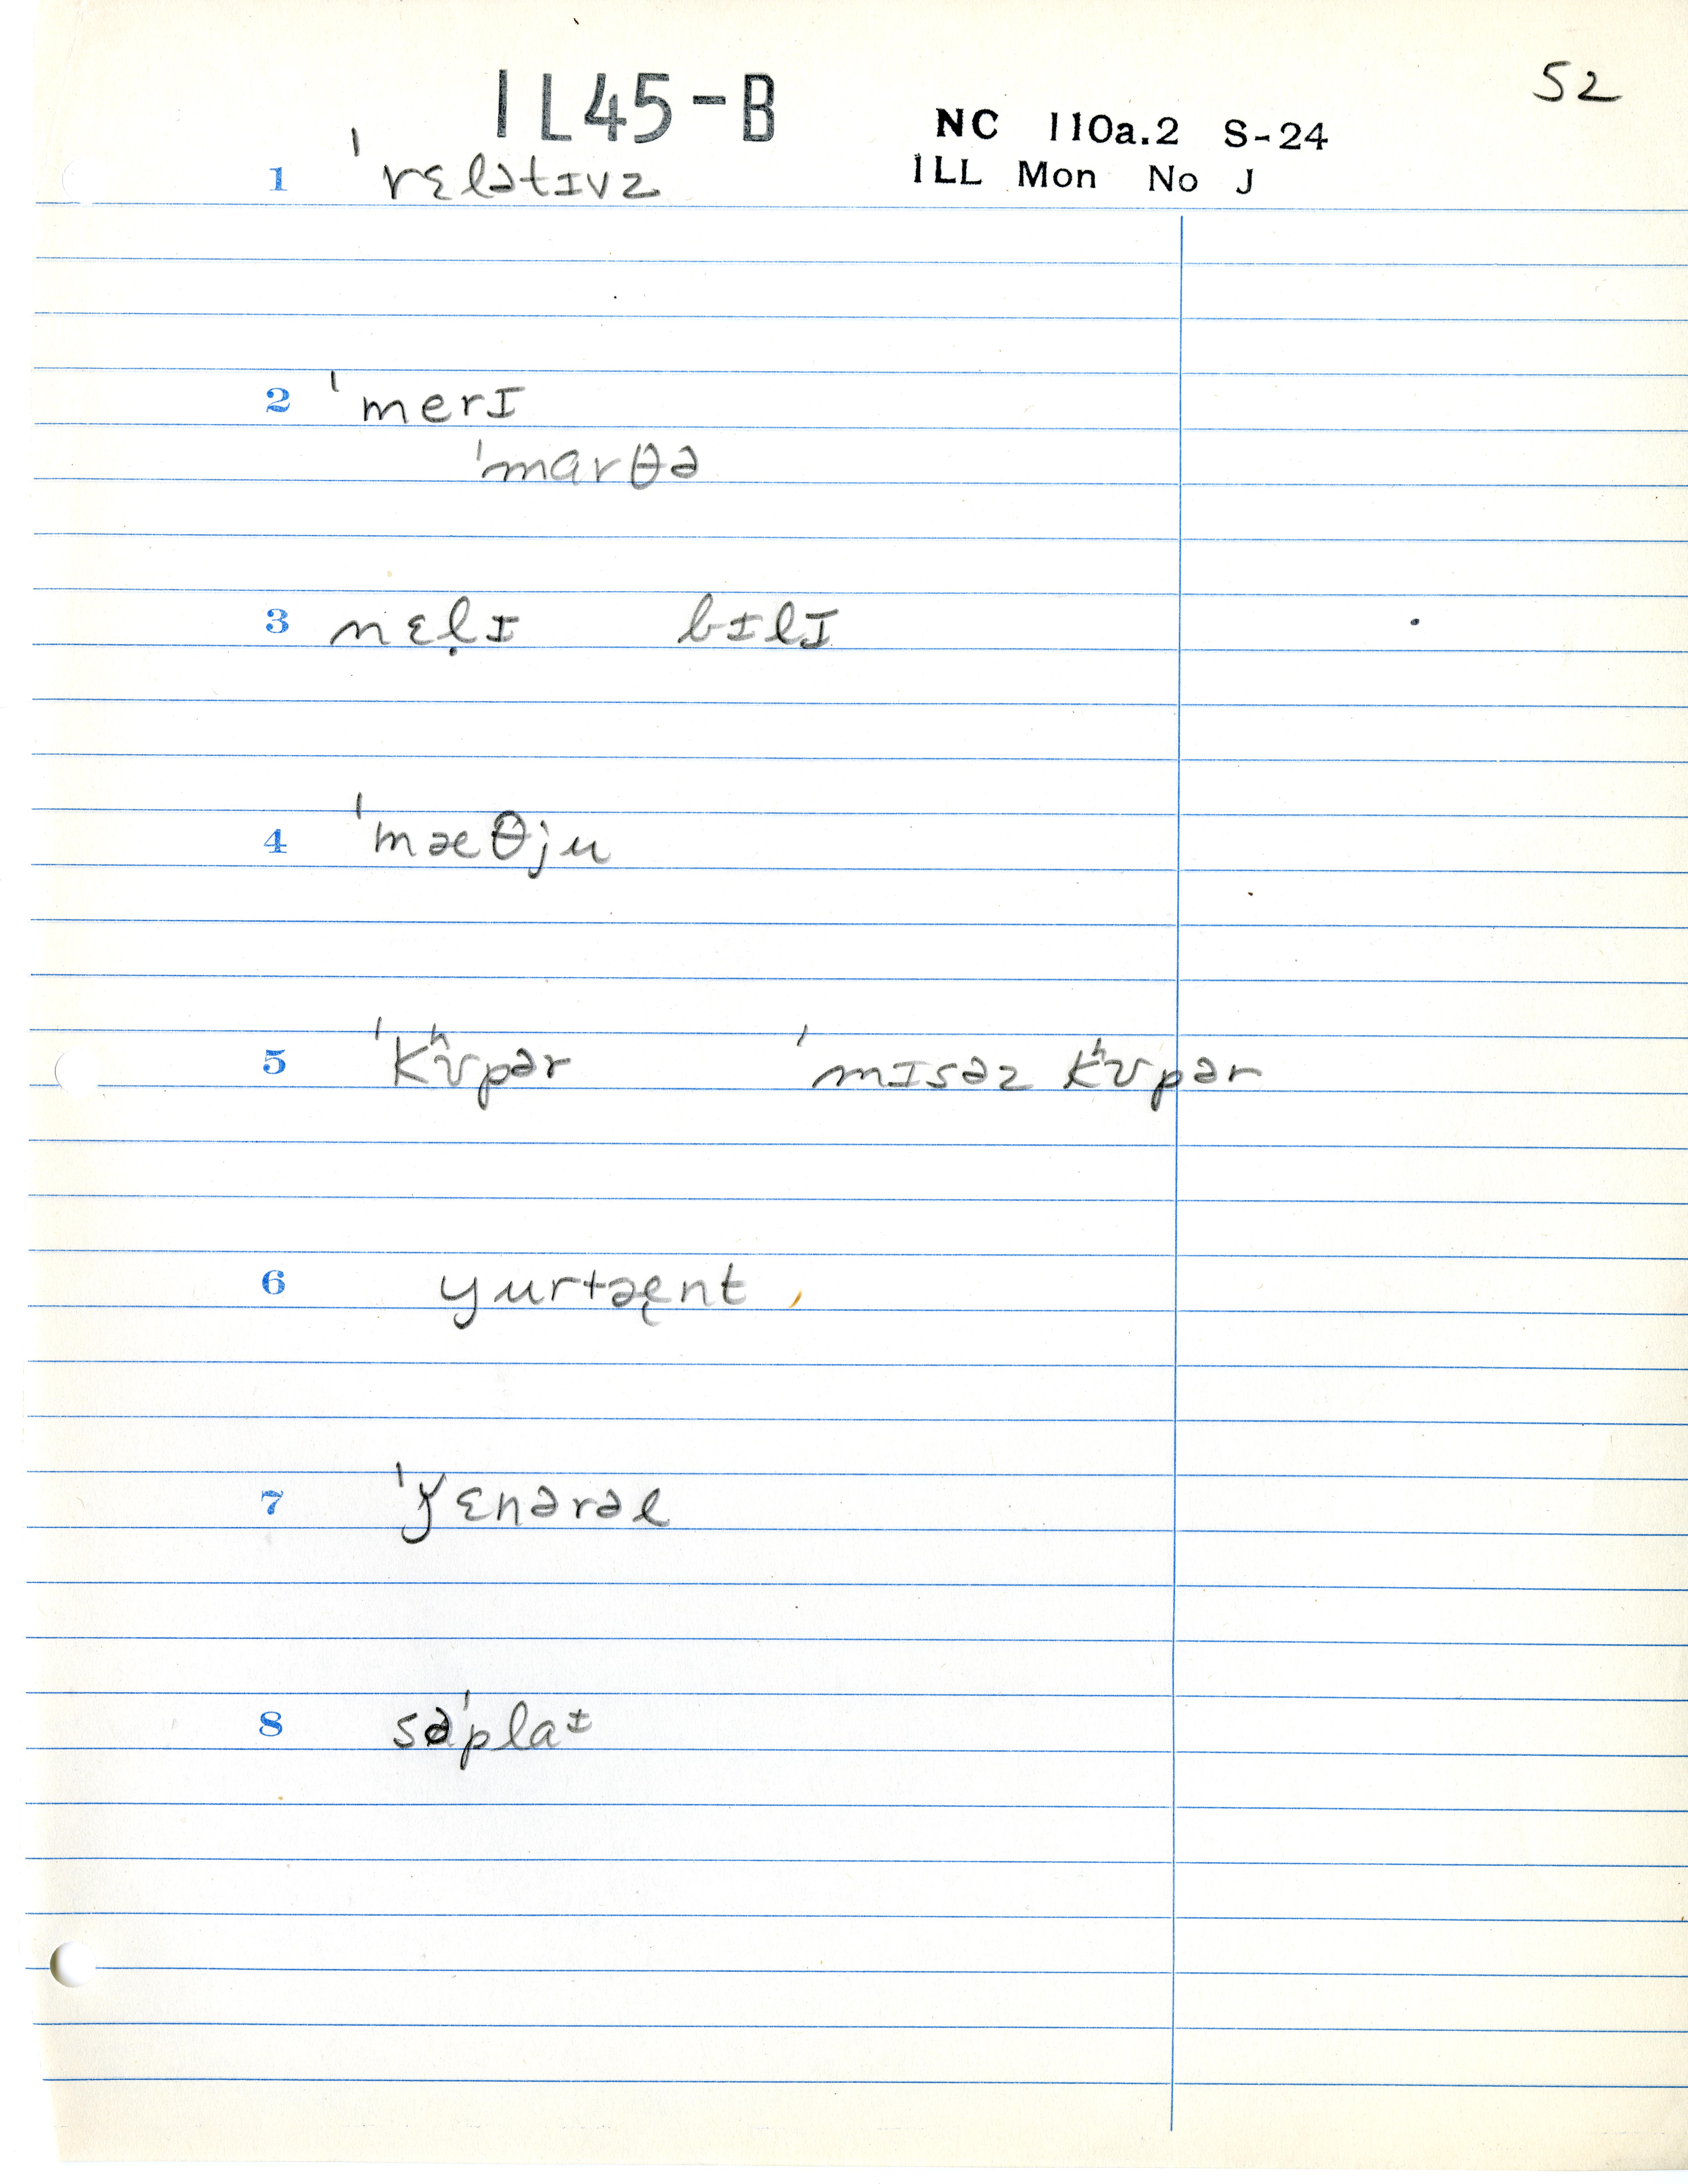 52
IL45-B
NC 110a.2 S-24
ILL Mon No J
1 ˈrɛlətɪvz
2 ˈmerɪ
ˈmɑrθə
3 nɛḷɪ bɪlɪ
4 ˈmæθju
5 ˈkʰʊpər ˈmɪsəz kʰʊpər
6 yurtæ̨nt
7 ˈǰɛnərəl
8 səˈplaᶦ